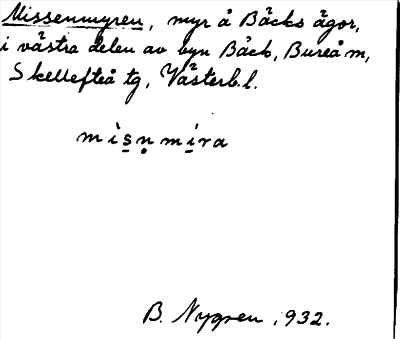 Missenmyren, myr å Bäcks ägor,
i västra delen av byn Bäck, Bureå m,
Skellefteå tg, Västerb. l.
mìs̲ṇmi̲ŕa
B. Nygren 1932.